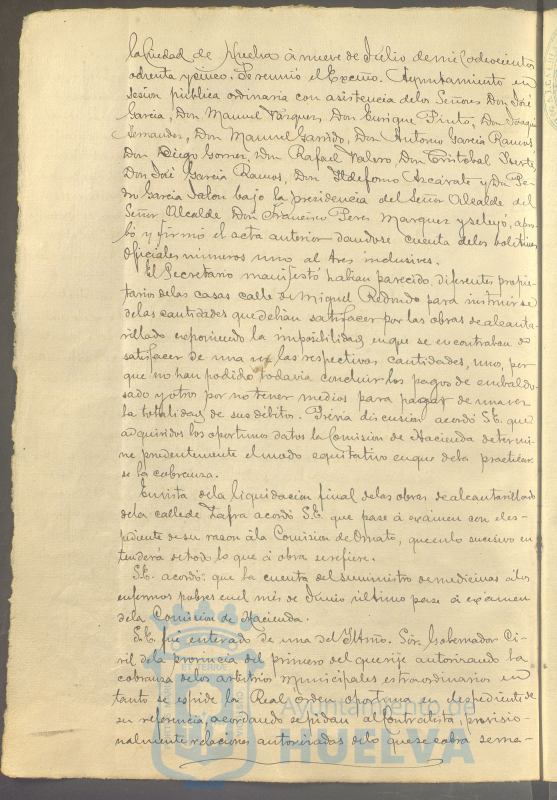 la Ciudad de Huelva á nueve de Julio de mil ochocientos
ochenta y cinco. Se reunió el Excmo. Ayuntamiento en
sesion publica ordinaria con asistencia de los Señores Don José
Garcia, Don Manuel Vazquez, Don Enrique Pinto, Don Joaquin
Hernandez, Don Manuel Garrido, Don Antonio Garcia Ramos,
Don Diego Gomez, Don Rafael Valero, Don Cristobal
Don José Garcia Ramos, Don Ildefonso Azcárate y Don Pe-
dro Garcia Jalon bajo la presidencia del Señor Alcalde del
Señor Alcalde Don Francisco Perez Marquez y se leyó, apro-
bó y firmó el acta anterior dandose cuenta de los boletines
oficiales numeros uno al tres inclusives.
El Secretario manifestó habian parecido diferentes propie-
tarios de las casas calle de Miguel Redondo para instruirse
de las cantidades que debian satisfacer por las obras de alcanta-
rillado exponiendo la imposibilidad en que se encontraban de
satisfacer de una vez las respectivas cantidades, uno, por
que no han podido todavia concluir los pagos de embaldo-
sado y otro por no tener medios para pagar de una vez
la totalidad de sus débitos. Prévia discusion acordó S.E. que
adquiridos los oportunos datos la Comision de Hacienda determi-
ne prudentemente el modo equitativo en que deba practicar-
se la cobranza.
En vista de la liquidacion final de las obras de alcantarillado
de la calle de Zafra acordó S.E. que pase á exámen con el es-
pediente de su razon á la Comision de Ornato, que en lo sucesivo en-
tenderá de todo lo que á obra se refiere.
S.E. acordó: que la cuenta del suministro de medicinas á los
enfermos pobres en el mes de Junio ultimo pase á exámen
de la Comision de Hacienda.
S.E. fué enterado de una del Iltmo. Sor. Gobernador Ci-
vil de la provincia del primero del que rije autorizando la
cobranza de los arbitrios municipales estraordinarios en
tanto se espide la Real orden oportuna en el espediente de
su referencia, acordando se pidan al Contratista, provisio-
nalmente relaciones autorizadas de lo que se cobra sema-
Ayuntamiento de
HUELVA